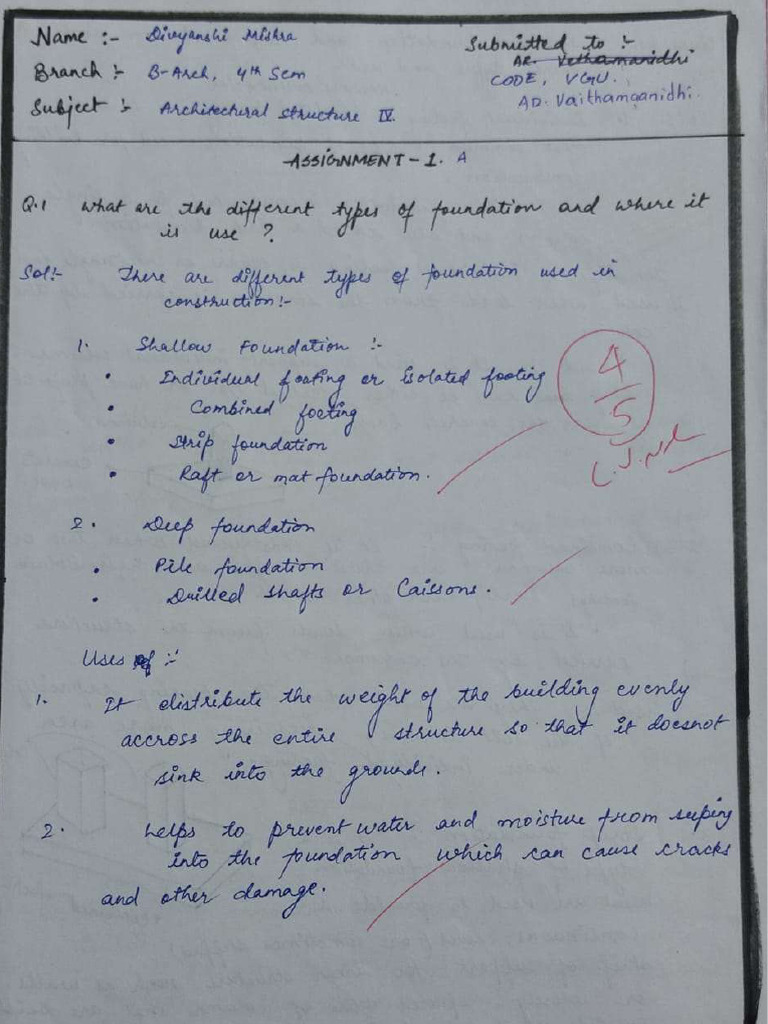 Name :- Divyanshi Mishra
Submitted to :-
Branch :- B-Arch, 4th Sem
AR. Vethamanidhi
CODE, VGU.
Subject :- Architectural structure IV.
AD. Vaithamaanidhi.
ASSIGNMENT - 1. A
Q.1 What are the different types of foundation and where it
is use ?
Sol:- There are different types of foundation used in
construction:-
1. Shallow Foundation :-
• Individual footing or isolated footing
• Combined footing
• Strip foundation
• Raft or mat foundation.
4/5
2. Deep foundation
• Pile foundation
• Drilled shafts or Caissons.
Uses of :-
1. It distribute the weight of the building evenly
accross the entire structure so that it doesnot
sink into the grounds.
2. helps to prevent water and moisture from seeping
into the foundation which can cause cracks
and other damage.